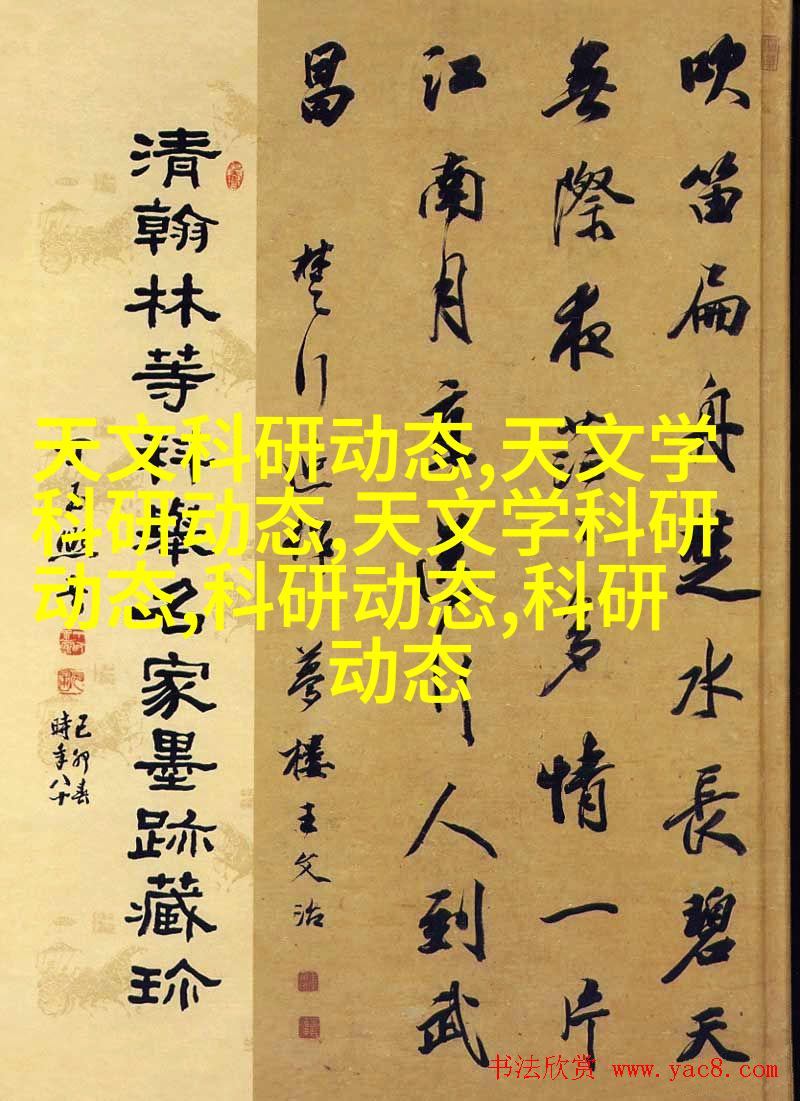 吹笛扁舟楚水長碧天
無際夜蒼多情一片
江南月送行人到武
昌
楚行近稿 夢樓王文治
清翰林等科舉名家墨跡藏珍
己卯春
時年八十
天文科研动态,天文学
科研动态,天文学科研
动态,科研动态,科研
动态
书法欣赏 www.yac8.com